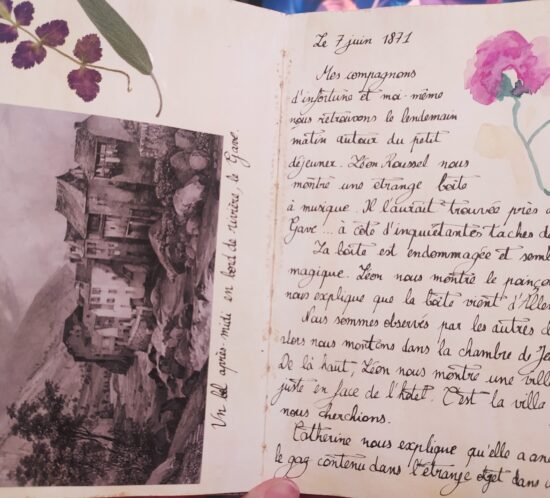 Un bel après-midi en bord de rivière, le Gave.
Le 7 juin 1871
Mes compagnons
d'infortune et moi-même
nous retrouvons le lendemain
matin autour du petit
déjeuner. Léon Roussel nous
montre une étrange boîte
à musique. Il l'aurait trouvée près
Gave... à côté d'inquiétantes taches de
La boîte est endommagée et
magique. Léon nous montre le
nous explique que la boîte vient
Nous sommes observés par les autres
alors nous montons dans la chambre de
De là haut, Léon nous montre une
juste en face de l'hôtel. C'est la villa
nous cherchions.
Catherine nous explique qu'elle a
le gaz contenu dans l'étrange objet dans